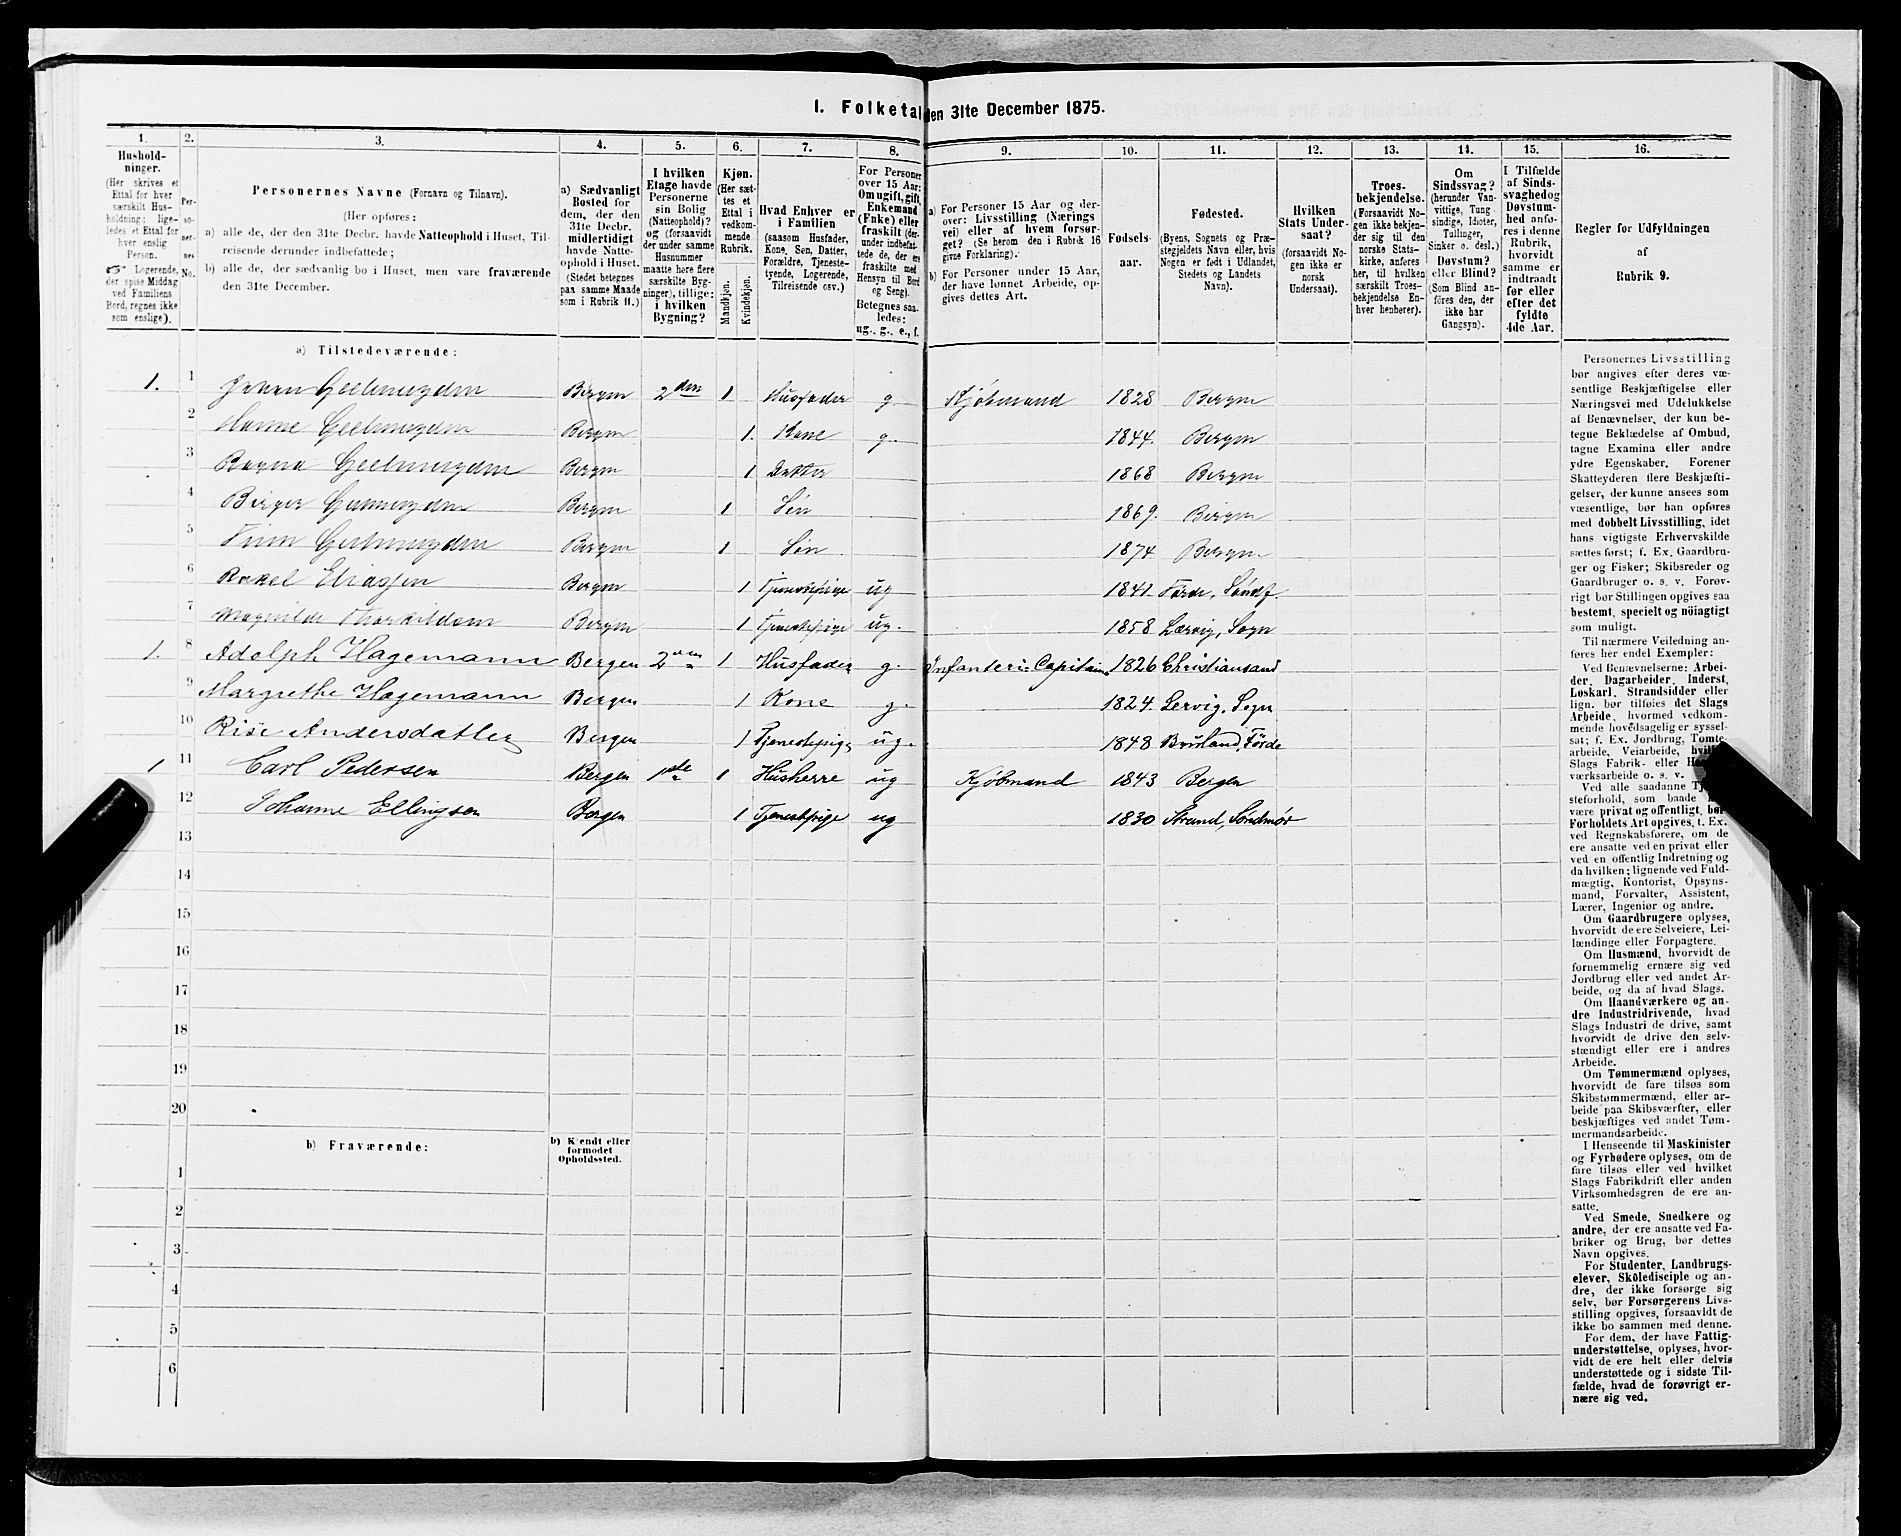 1. Folketal den 31te December 1875.
1. 2. 3. 4. 5. 6. 7. 8. 9. 10. 11. 12. 13. 14. 15. 16.
Hushold-
ninger.
(Her skrives et
Ettal for hver
særskilt Hus-
holdning; lige-
ledes et Ettal for
hver enslig
Person.
☞ Logerende,
der spise Middag
ved Familiens
Bord, regnes ikke
som enslige).
Per-
so-
ner-
nes
No.
Personernes Navne (Fornavn og Tilnavn).
(Her opføres:
a) alle de, der den 31te Decbr. havde Natteophold i Huset, Til-
reisende derunder indbefattede;
b) alle de, der sædvanlig bo i Huset, men vare fraværende
den 31te December.
a) Sædvanligt
Bosted for
dem, der den
31te Decbr.
midlertidigt
havde Natte-
ophold i Huset.
(Stedet betegnes
paa samme Maade
som i Rubrik 11.)
I hvilken
Etage havde
Personerne
sin Bolig
(Natteophold)?
og (forsaavidt
der under samme
Husnummer
maatte høre flere
særskilte Byg-
ninger), tillige:
i hvilken
Bygning?
Kjøn.
(Her sæt-
tes et
Ettal i
vedkom-
mende
Rubrik.)
Mandkjøn.
Kvindekjøn.
Hvad Enhver er
i Familien
(saasom Husfader,
Kone, Søn, Datter,
Forældre, Tjeneste-
tyende, Logerende,
Tilreisende osv.)
For Personer
over 15 Aar:
Om ugift, gift,
Enkemand
(Enke) eller
fraskilt (der-
under indbefat-
tede de, der ere
fraskilte med
Hensyn til Bord
og Seng).
Betegnes saa-
ledes:
ug., g., e., f.
a) For Personer 15 Aar og der-
over: Livsstilling (Nærings
vei) eller af hvem forsør-
get? (Se herom den i Rubrik 16
givne Forklaring).
b) For Personer under 15 Aar,
der have lønnet Arbeide, op-
gives dettes Art.
Fødsels-
aar.
Fødested.
(Byens, Sognets og Præ-
stegjeldets Navn eller, hvis
Nogen er født i Udlandet,
Stedets og Landets
Navn).
Hvilken
Stats Under-
saat?
(forsaavidt No-
gen ikke er
norsk
Undersaat).
Troes-
bekjendelse.
(Forsaavidt No-
gen ikke bekjen-
der sig til den
norske Stats-
kirke, anføres
her, til hvilken
særskilt Troes-
bekjendelse En-
hver henhører).
Om
Sindssvag?
(herunder Van-
vittige, Tung
sindige, Idioter,
Tullinger,
Sinker o. desl.)
Døvstum?
eller Blind?
(Som Blind an-
føres den, der
ikke har
Gangsyn).
I Tilfælde
af Sinds-
svaghed og
Døvstum-
hed anfø-
res i denne
Rubrik,
hvorvidt
samme er
indtraadt
før eller
efter det
fyldte
4de Aar.
Regler for Udfyldningen
af
Rubrik 9.
a) Tilstedeværende:
1. 1 Geelmuyden Bergen 2den 1 Husfader g. Kjøbmand 1828 Bergen
2 Hanne Geelmuyden Bergen 1. Kone g. 1844. Bergen
3 Ragna Geelmuyden Bergen 1 Datter 1868 Bergen
4 Birger Geelmuyden Bergen 1 Søn 1869. Bergen
5 Finn Geelmuyden Bergen 1 Søn 1874 Bergen
6 Rakel Eliassen Bergen 1 Tjenestepige ug 1841. Førde, Søndf.
7 Magnilde Bergen 1 Tjenestepige ug. 1858 Lærvig, Sogn
1. 8 Adolph Hagemann Bergen 2den 1 Husfader g. Infanteri-Capitain 1826 Christiansand
9 Margrethe Hagemann Bergen 1 Kone g. 1824. Lervig, Sogn
10 Rise Andersdatter Bergen 1 Tjenestepige ug. 1848 Førde
1 11 Carl Pedersen Bergen 1ste 1 Husherre ug Kjøbmand 1843 Bergen
12 Johanne Ellingsen Bergen 1 Tjenestepige ug 1830 Strand, Søndmør
13
14
15
16
17
18
19
20
b) Fraværende:
b) Kjendt eller
formodet
Opholdssted.
1
2
3
4
5
6
Personernes Livsstilling
bør angives efter deres væ-
sentlige Beskjæftigelse eller
Næringsvei med Udelukkelse
af Benævnelser, der kun be-
tegne Beklædelse af Ombud,
tagne Examina eller andre
ydre Egenskaber. Forener
Skatteyderen flere Beskjæfti-
gelser, der kunne ansees som
væsentlige, bør han opføres
med dobbelt Livsstilling, idet
hans vigtigste Erhvervskilde
sættes først; f. Ex. Gaardbru-
ger og Fisker; Skibsreder og
Gaardbruger o. s. v. Forøv-
rigt bør Stillingen opgives saa
bestemt, specielt og nöiagtigt
som muligt.
Til nærmere Veiledning an-
føres her endel Exempler:
Ved Benævnelserne: Arbei-
der, Dagarbeider, Inderst,
Løskarl, Strandsidder eller
lign. bør tilføies det Slags
Arbeide, hvormed vedkom-
mende hovedsagelig er syssel-
sat; f. Ex. Jordbrug, Tomte-
arbeide, Veiarbeide,
Slags Fabrik- eller
værksarbeide o. s. v.
Ved alle saadanne
steforhold, som baade
være privat og offentligt, bør
Forholdets Art opgives, f. Ex.
ved Regnskabsførere, om de
ere ansatte ved en privat eller
ved en offentlig Indretning og
da hvilken; lignende ved Fuld-
mægtig, Kontorist, Opsyns-
mand, Forvalter, Assistent,
Lærer, Ingeniør og andre.
Om Gaardbrugere oplyses,
hvorvidt de ere Selveiere, Lei-
lændinge eller Forpagtere.
Om Husmænd, hvorvidt de
fornemmelig ernære sig ved
Jordbrug eller ved andet Ar-
beide, og da af hvad Slags.
Om Haandværkere og an-
dre Industridrivende, hvad
Slags Industri de drive, samt
hvorvidt de drive den selv-
stændigt eller ere i andres
Arbeide.
Om Tømmermænd oplyses,
hvorvidt de fare tilsøs som
Skibstømmermænd, eller ar-
beide paa Skibsværfter, eller
beskjæftiges ved andet Tøm-
mermandsarbeide.
I Henseende til Maskinister
og Fyrbødere oplyses, om de
fare tilsøs eller ved hvilket
Slags Fabrikdrift eller anden
Virksomhedsgren de ere an-
satte.
Ved Smede, Snedkere og
andre, der ere ansatte ved Fa-
briker og Brug, bør dettes
Navn opgives.
For Studenter, Landbrugs-
elever, Skoledisciple og an-
dre, der ikke forsørge sig
selv, bør Forsørgerens Livs-
stilling opgives, forsaavidt de
ikke bo sammen med denne.
For dem, der have Fattig-
understøttelse, oplyses, hvor-
vidt de ere helt eller delvis
understøttede og i sidste Til-
fælde, hvad de forøvrigt er-
nære sig ved.